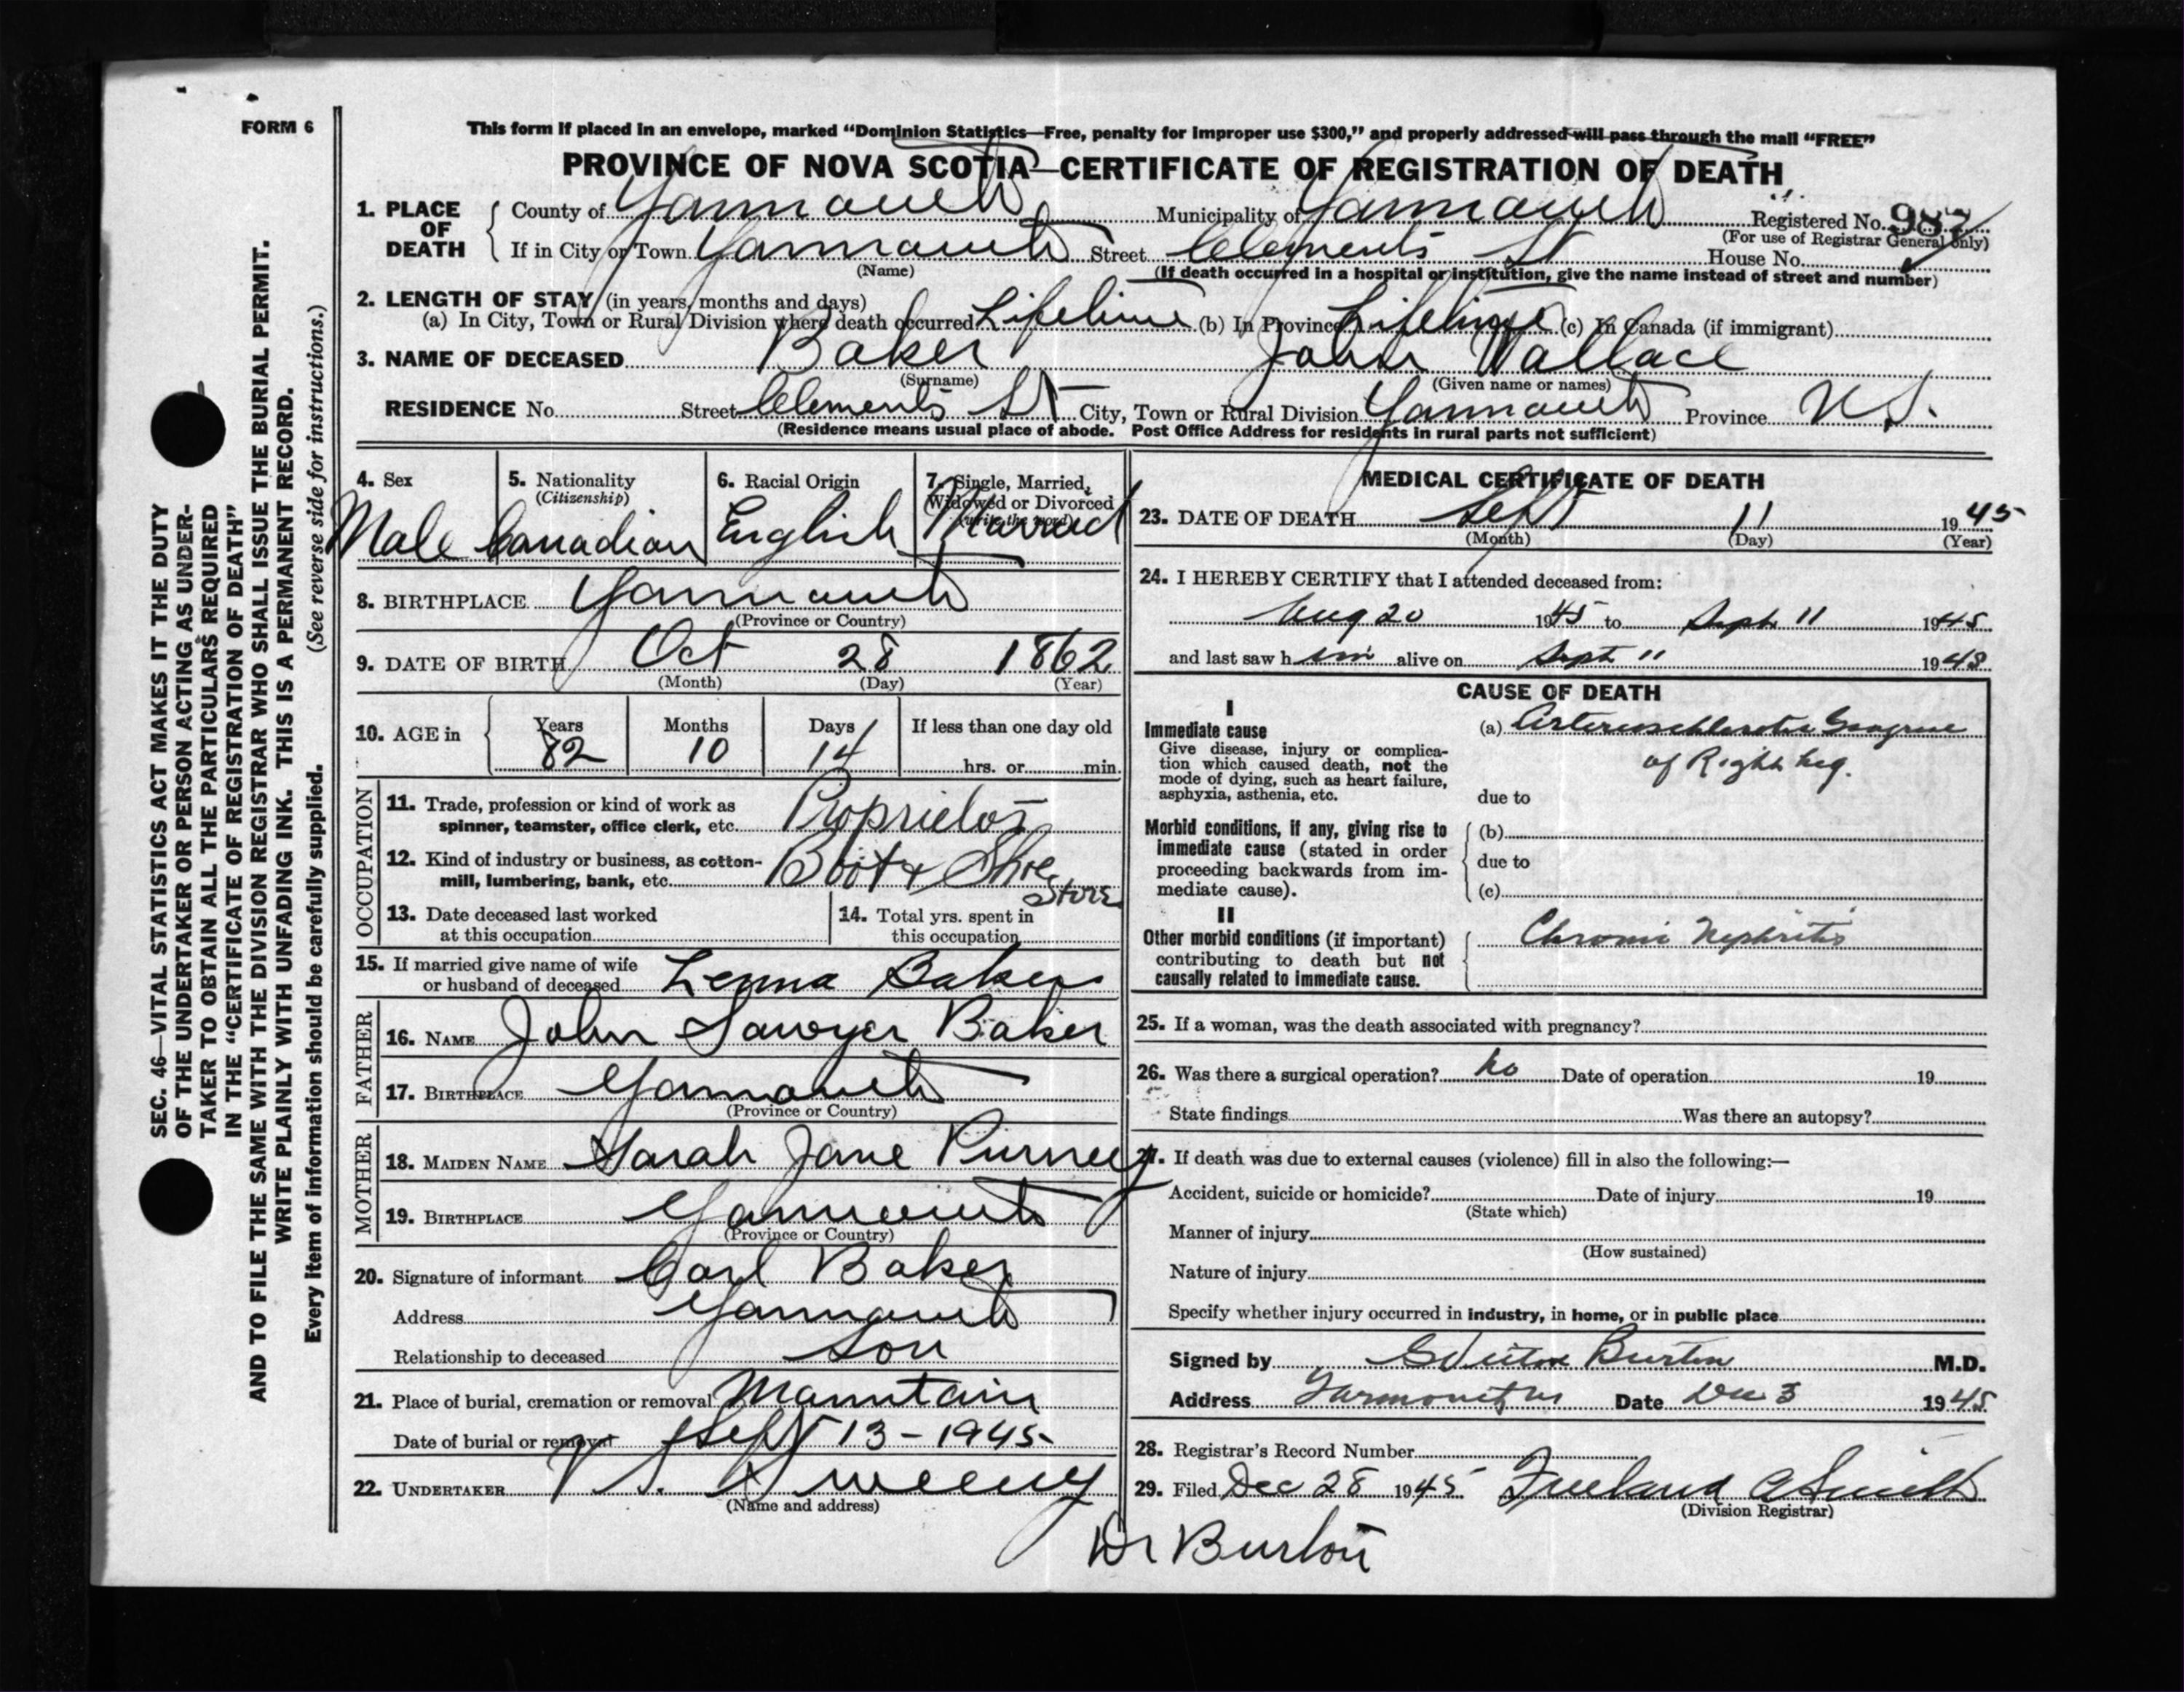 FORM 6
This form if placed in an envelope, marked “Dominion Statistics—Free, penalty for improper use $300,” and properly addressed will pass through the mail “FREE”
PROVINCE OF NOVA SCOTIA—CERTIFICATE OF REGISTRATION OF DEATH
1. PLACE OF DEATH
County of Yarmouth Municipality of Yarmouth Registered No. 987
(For use of Registrar General only)
If in City or Town Yarmouth Street Clements St House No.
(Name) (If death occurred in a hospital or institution, give the name instead of street and number)
2. LENGTH OF STAY (in years, months and days)
(a) In City, Town or Rural Division where death occurred Lifetime (b) In Province Lifetime (c) In Canada (if immigrant)
3. NAME OF DECEASED Baker John Wallace
(Surname) (Given name or names)
RESIDENCE No. Street Clements St City, Town or Rural Division Yarmouth Province N.S.
(Residence means usual place of abode. Post Office Address for residents in rural parts not sufficient)
4. Sex Male
5. Nationality (Citizenship) Canadian
6. Racial Origin English
7. Single, Married, Widowed or Divorced (write the word) Married
8. BIRTHPLACE Yarmouth
(Province or Country)
9. DATE OF BIRTH Oct 28 1862
(Month) (Day) (Year)
10. AGE in Years Months Days If less than one day old
82 10 14 hrs. or min.
OCCUPATION
11. Trade, profession or kind of work as
spinner, teamster, office clerk, etc. Proprietor
12. Kind of industry or business, as cotton-
mill, lumbering, bank, etc. Boot & Shoe
Store
13. Date deceased last worked
at this occupation
14. Total yrs. spent in
this occupation
15. If married give name of wife
or husband of deceased Baker
FATHER
16. NAME John Sawyer Baker
17. BIRTHPLACE Yarmouth
(Province or Country)
MOTHER
18. MAIDEN NAME Sarah Jane Purney
19. BIRTHPLACE Yarmouth
(Province or Country)
20. Signature of informant Carl Baker
Address Yarmouth
Relationship to deceased Son
21. Place of burial, cremation or removal Mountain
Date of burial or removal Sept 13 - 1945
22. UNDERTAKER V S. Sweeny
(Name and address)
MEDICAL CERTIFICATE OF DEATH
23. DATE OF DEATH Sept 11 1945
(Month) (Day) (Year)
24. I HEREBY CERTIFY that I attended deceased from:
Aug 20 1945 to Sept 11 1945
and last saw h im alive on Sept 11 1945
CAUSE OF DEATH
I
Immediate cause
Give disease, injury or complica-
tion which caused death, not the
mode of dying, such as heart failure,
asphyxia, asthenia, etc.
(a)
of Right Leg.
due to
Morbid conditions, if any, giving rise to
immediate cause (stated in order
proceeding backwards from im-
mediate cause).
(b)
due to
(c)
II
Other morbid conditions (if important)
contributing to death but not
causally related to immediate cause.
Chronic Nephritis
25. If a woman, was the death associated with pregnancy?
26. Was there a surgical operation? No Date of operation 19
State findings Was there an autopsy?
27. If death was due to external causes (violence) fill in also the following:—
Accident, suicide or homicide? Date of injury 19
(State which)
Manner of injury
(How sustained)
Nature of injury
Specify whether injury occurred in industry, in home, or in public place
Signed by Burton M.D.
Address Yarmouth NS Date Dec 3 1945
28. Registrar's Record Number
29. Filed Dec 28 1945 Freeland A Smith
(Division Registrar)
Dr Burton
SEC. 46—VITAL STATISTICS ACT MAKES IT THE DUTY
OF THE UNDERTAKER OR PERSON ACTING AS UNDER-
TAKER TO OBTAIN ALL THE PARTICULARS REQUIRED
IN THE “CERTIFICATE OF REGISTRATION OF DEATH”
AND TO FILE THE SAME WITH THE DIVISION REGISTRAR WHO SHALL ISSUE THE BURIAL PERMIT.
WRITE PLAINLY WITH UNFADING INK. THIS IS A PERMANENT RECORD.
Every item of information should be carefully supplied. (See reverse side for instructions.)